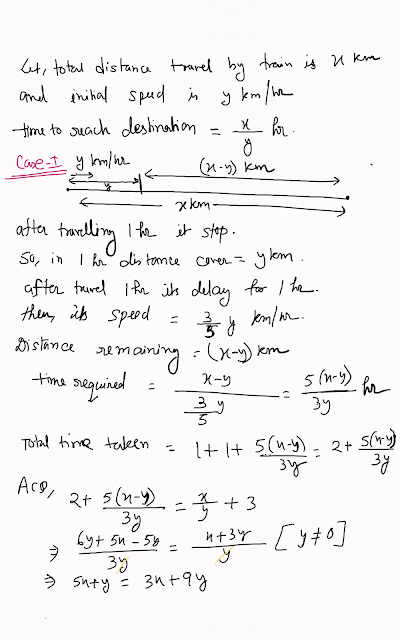 Let, total distance travel by train is x km
and initial speed is y km/hr
time to reach destination = x/y hr.
Case-I y km/hr (x-y) km
y
x km
after travelling 1 hr it stop.
So, in 1 hr distance cover = y km.
after travel 1 hr its delay for 1 hr.
then, its speed = 3/5 y km/hr.
Distance remaining = (x-y) km
time required = (x-y)/(3/5 y) = 5(x-y)/3y hr
Total time taken = 1+1+ 5(x-y)/3y = 2+ 5(x-y)/3y
ACQ, 2+ 5(x-y)/3y = x/y + 3
⇒ (6y+5x-5y)/3y = (x+3y)/y [y≠0]
⇒ 5x+y = 3x+9y